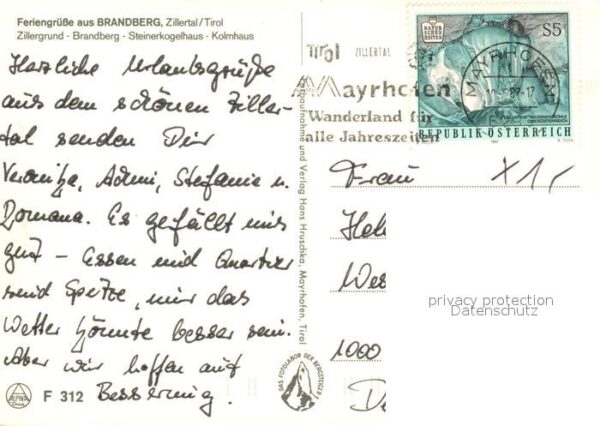 Feriengrüße aus BRANDBERG, Zillertal/Tirol
Zillergrund - Brandberg - Steinerkogelhaus - Kolmhaus
Herzliche Urlaubsgrüße
aus dem schönen Ziller-
tal senden Dir
Stefanie u.
Romana. Es gefällt uns
gut - Essen und Quartier
sind Spitze, nur das
Wetter könnte besser sein.
Aber wir hoffen auf
Besserung.
F 312
Farbaufnahme und Verlag Hans Hruschka, Mayrhofen, Tirol
Tirol ZILLERTAL
Mayrhofen
Wanderland für
alle Jahreszeiten
NATUR
SCHÖN
HEITEN
S5
MAYRHOFEN
REPUBLIK ÖSTERREICH
Frau
X1,-
1000
privacy protection
Datenschutz
DAS FOTOLABOR DER BERGSTEIGER